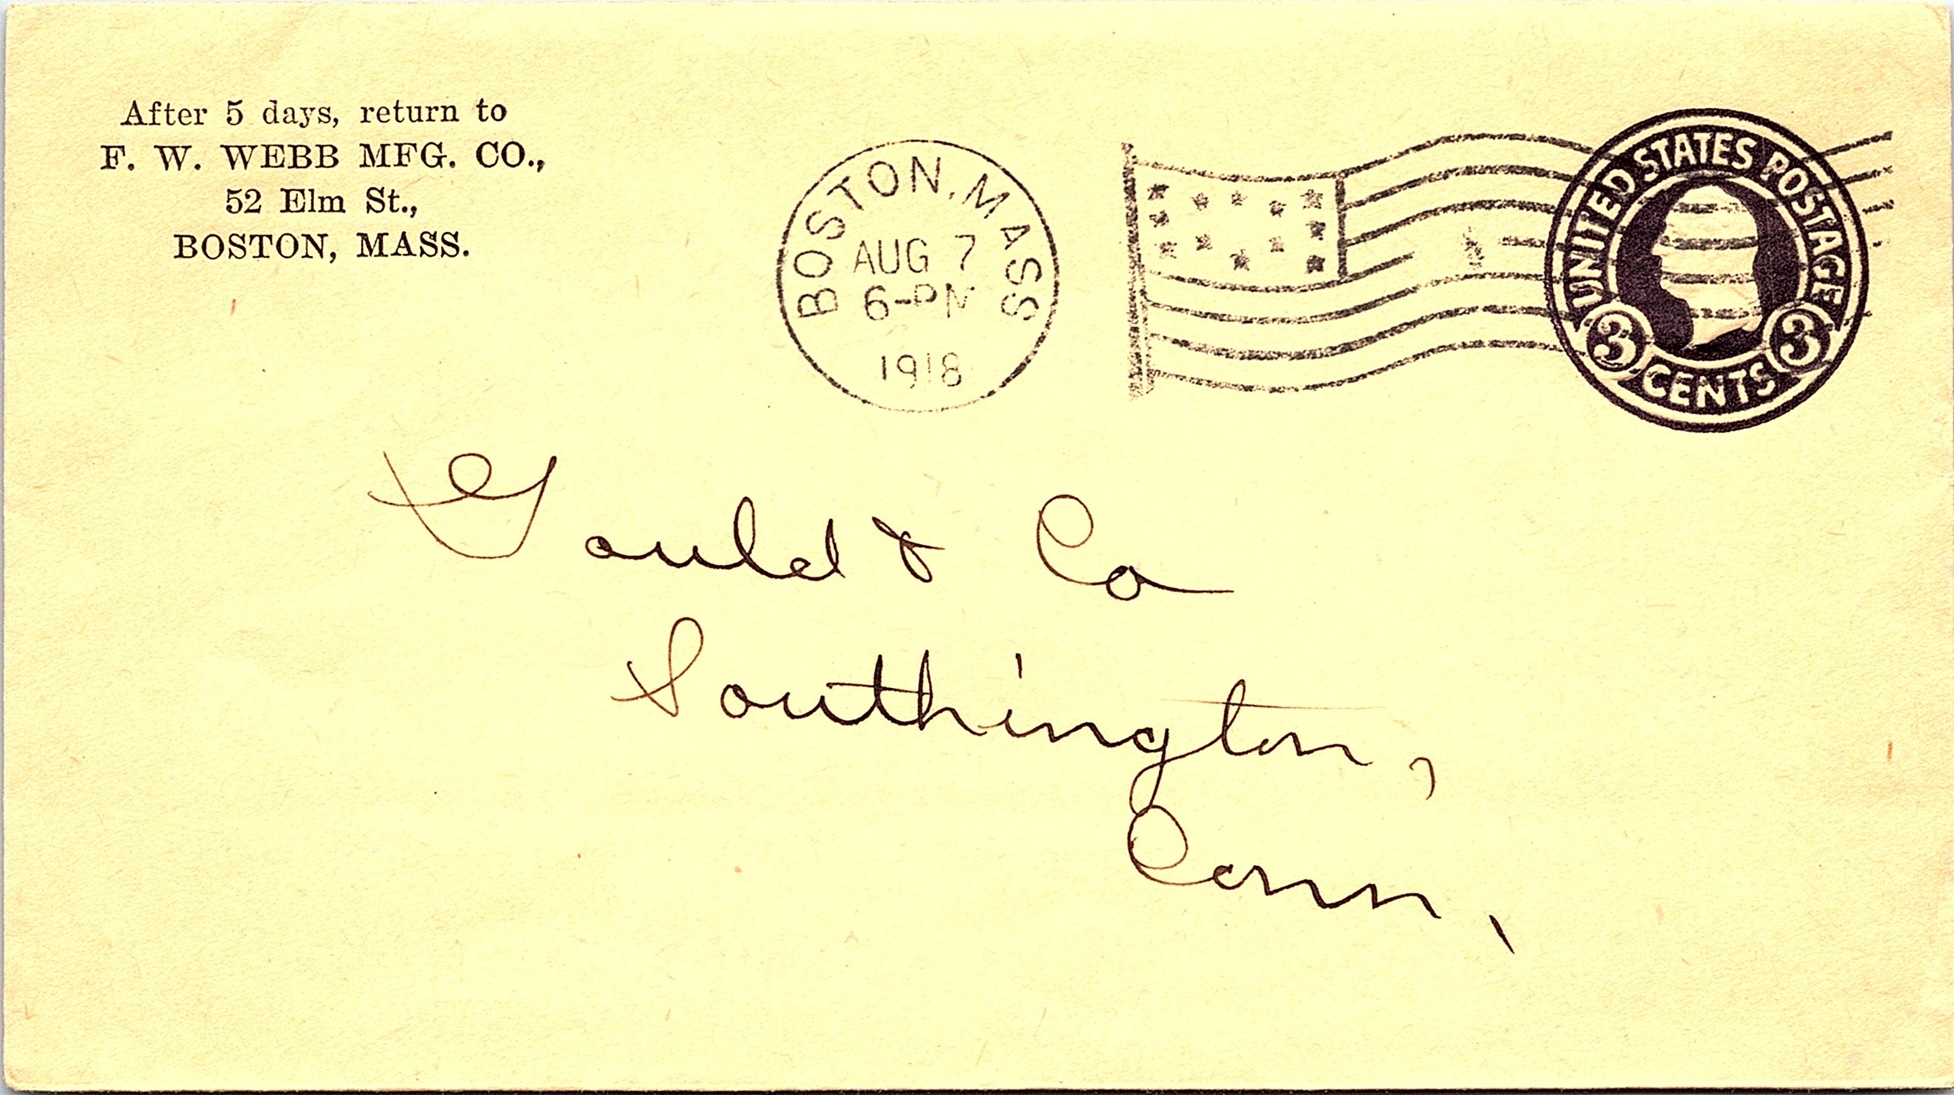 After 5 days, return to
F. W. WEBB MFG. CO.,
52 Elm St.,
BOSTON, MASS.
BOSTON, MASS
AUG 7
6-PM
1918
UNITED STATES POSTAGE
3 CENTS 3
Gould & Co
Southington,
Conn,